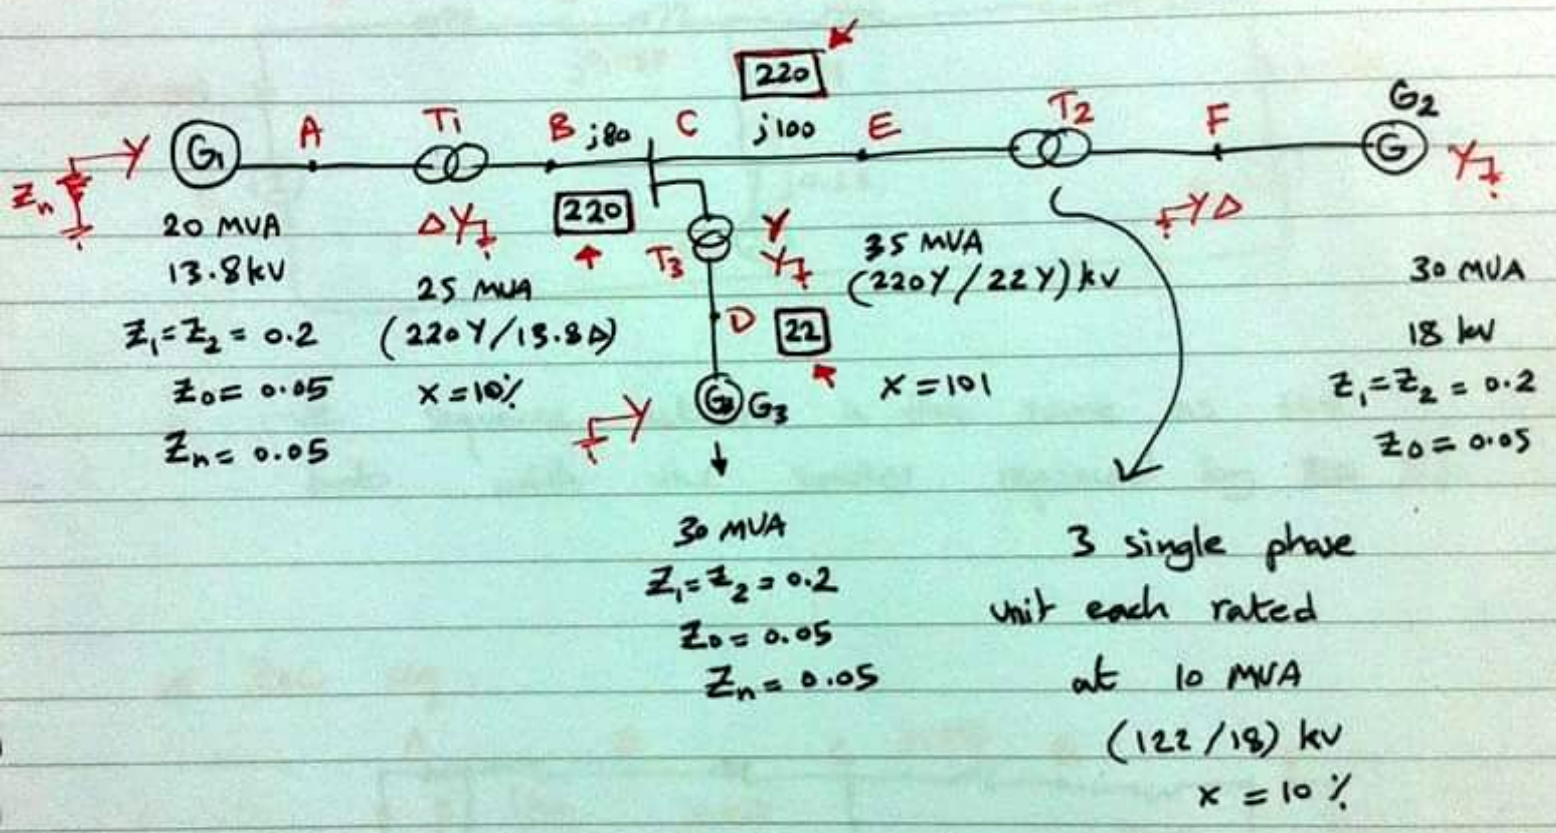 220
G2
A T1 B j80 C j100 E T2 F
Y G1 G Y
Zn
220
20 MVA
13.8kV
Z1=Z2 = 0.2
Z0= 0.05
Zn= 0.05
ΔY
25 MVA
(220Y/13.8Δ)
x=10%
T3 Y
Y
D 22
G3
Y
35 MVA
(220Y/22Y)kV
x=101
YΔ
30 MVA
18 kV
Z1=Z2 = 0.2
Z0=0.05
30 MVA
Z1=Z2=0.2
Z0=0.05
Zn=0.05
3 single phase
unit each rated
at 10 MVA
(122/18) kV
x=10%